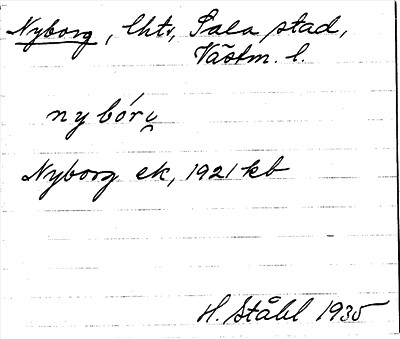 Nyborg, lht, Sala stad,
Västm. l.
nybórj
Nyborg ek, 1921 kb
H. Ståhl 1935